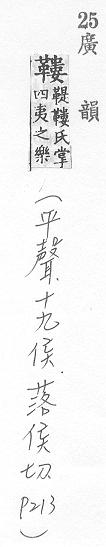 25
廣韻
鞻
鞮鞻氏掌
四夷之樂
(平聲十九侯.落侯切 P213)